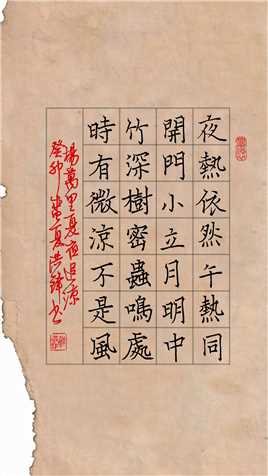 夜熱依然午熱同
開門小立月明中
竹深樹密蟲鳴處
時有微涼不是風
楊萬里夏夜追涼
癸卯仲夏洪鋒書